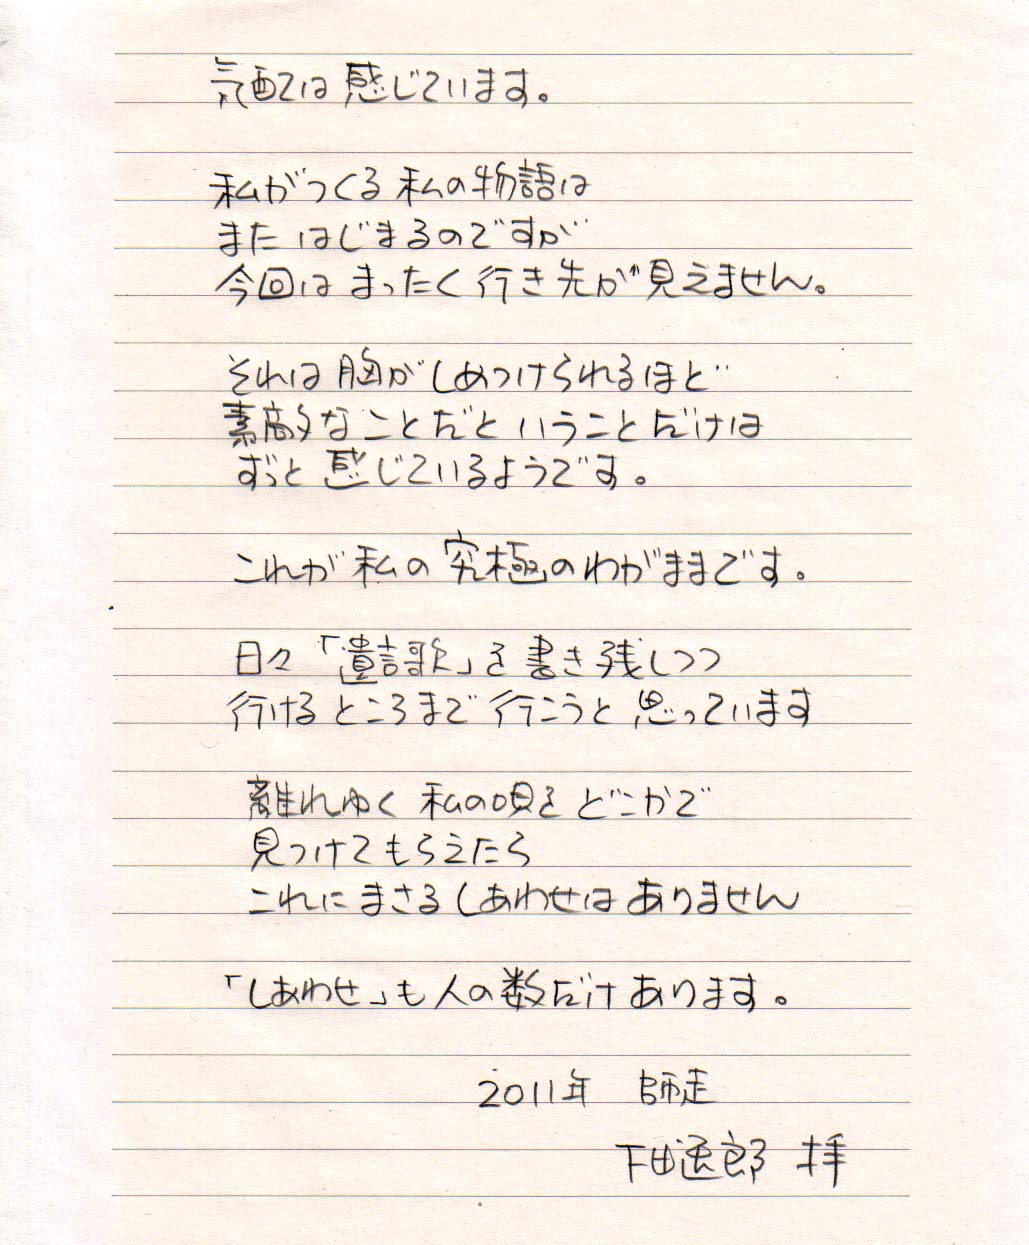 気配は感じています。
私がつくる私の物語は
またはじまるのですが
今回はまったく行き先が見えません。
それは胸がしめつけられるほど
素敵なことだということだけは
ずっと感じているようです。
これが私の究極のわがままです。
日々「遺言歌」を書き残しつつ
行けるところまで行こうと思っています
離れゆく私の唄をどこかで
見つけてもらえたら
これにまさるしあわせはありません
「しあわせ」も人の数だけあります。
2011年 師走
下田逸郎 拝